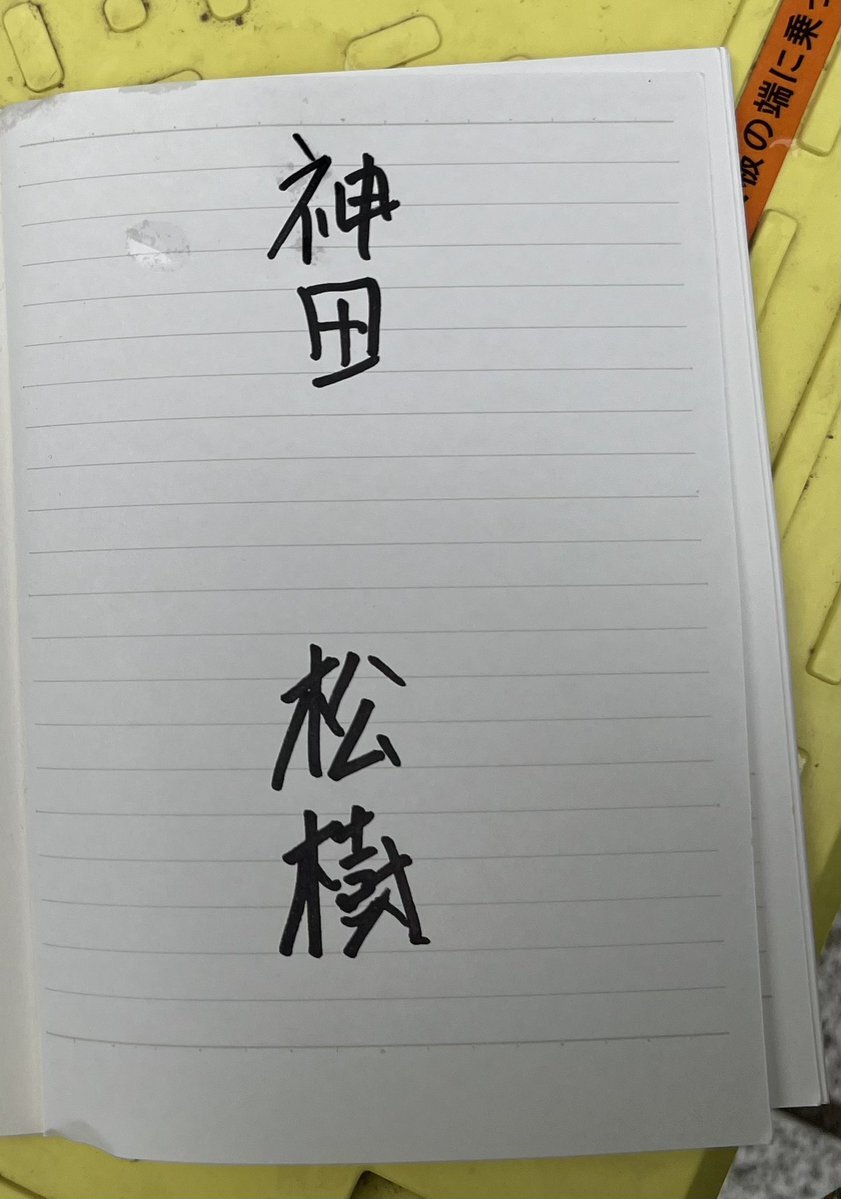 神田
松樹
の端に乗